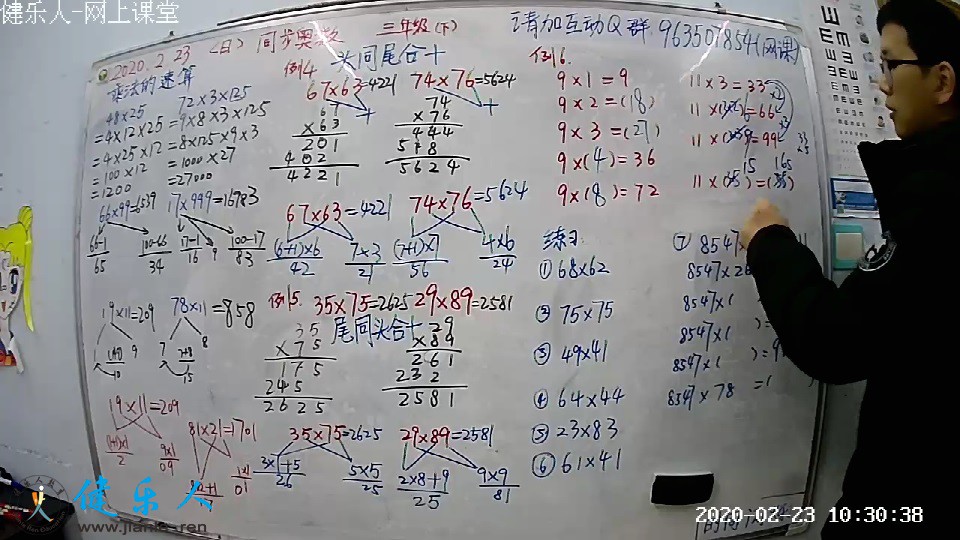 健乐人-网上课堂
2020.2.23 (日) 同步奥数 三年级(下)
请加互动Q群 963507854(网课)
乘法的速算
48×25
=4×12×25
=4×25×12
=100×12
=1200
72×3×125
=9×8×3×125
=8×125×9×3
=1000×27
=27000
17×999=16983
66-1
65
100-66
34
17-1
16
9
100-17
83
19×11=209
78×11=858
1
9
10
7
7+8
15
8
19×11=209
2
9×1
09
81×21=1701
1×1
01
例4 头同尾合十
67×63=4221
74×76=5624
×63
201
402
4221
74
×76
444
518
5624
67×63=4221
74×76=5624
(6+1)×6
42
7×3
21
(7+1)×7
56
4×6
24
例5. 35×75=2625 29×89=2581
尾同头合十
35
×75
175
245
2625
29
×89
261
232
2581
35×75=2625
29×89=2581
3×7+5
26
5×5
25
2×8+9
25
9×9
81
例6.
9×1=9
9×2=(18)
9×3=(27)
9×(4)=36
9×(8)=72
11×3=33
15 165
练习
①68×62
②75×75
③49×41
④64×44
⑤23×83
⑥61×41
⑦ 8547×
8547×
8547×(
8547×( )=
8547×( )=
8547×78 =(
健乐人
www.jianle-ren
2020-02-23 10:30:38